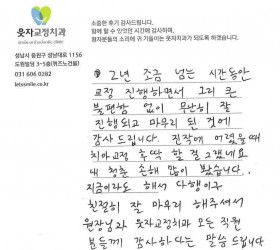 웃자교정치과
성남시 중원구 성남대로 1156
도원빌딩 3~5층(위즈노건물)
031 606 0282
letssmile.co.kr
소중한 후기 감사드립니다.
함께 할 수 있었던 시간에 감사하며,
환자분들의 소리에 귀 기울이는 웃자치과가 되도록 하겠습니다.
2년 조금 넘는 시간동안
교정 진행하면서 그리 큰
불편함 없이 무난히 잘
진행되고 마무리 된 것에
감사드립니다. 진작에 어렸을 때
치아교정 후딱 할 걸 그랬네요
내 청춘 손해 많이 봤습니다.
지금이라도 해서 다행이구
친절히 잘 마무리 해주셔서
원장님과 웃자교정치과 모든 직원
분들께 감사하다는 말씀 드립니다